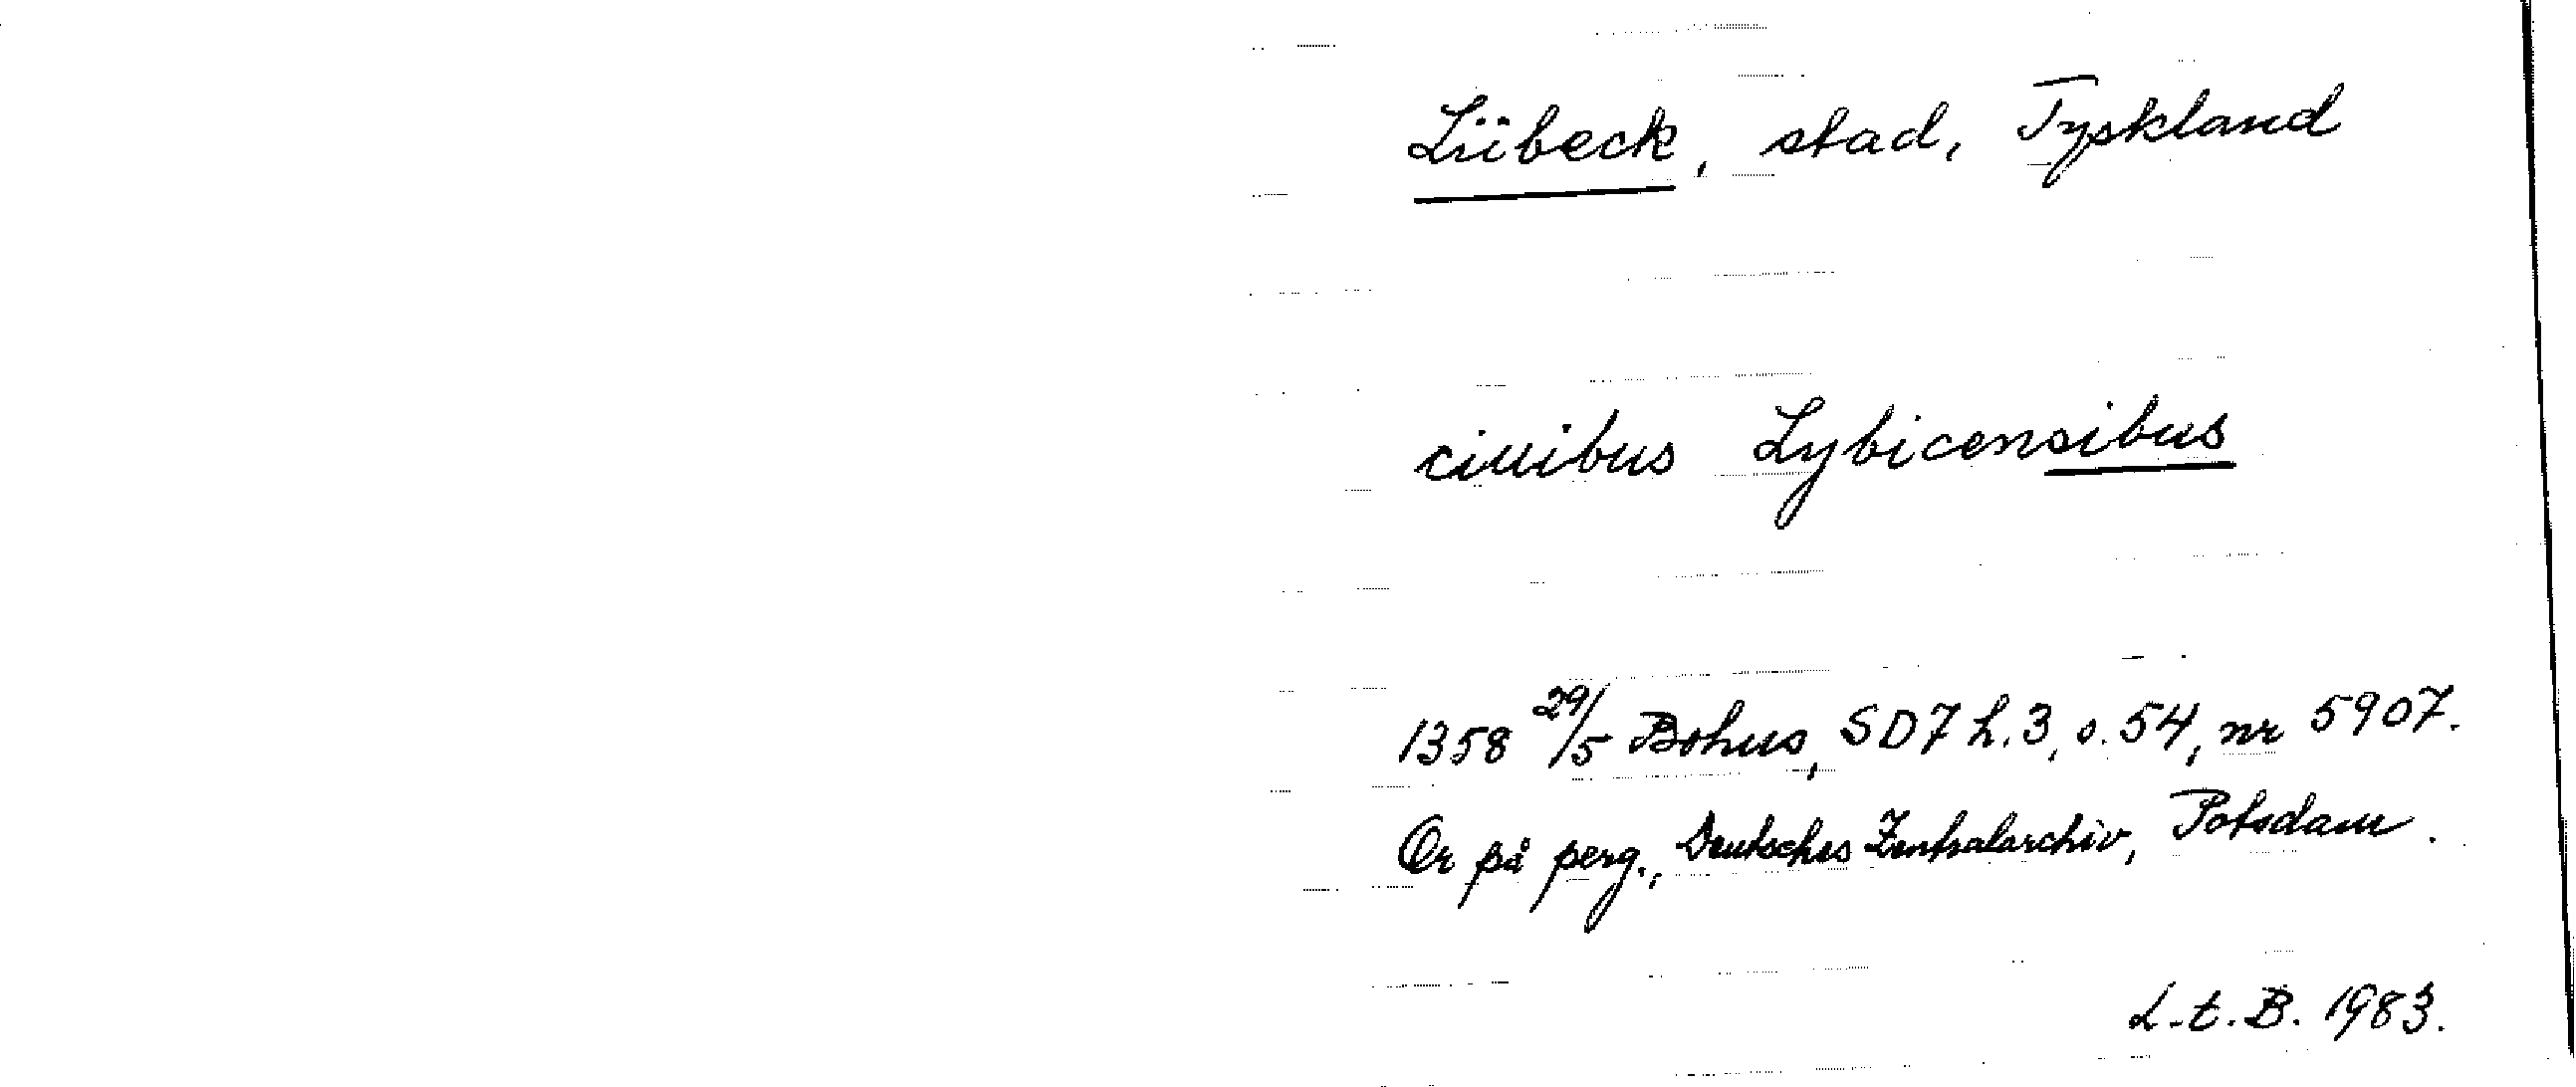 Lübeck, stad, Tyskland
ciuibus Lybicensibus
1358 29/5 Bohus, SD7 h.3, s. 54, nr 5907.
Or på perg., Deutsches Zentralarchiv, Potsdam.
L.t.B. 1983.